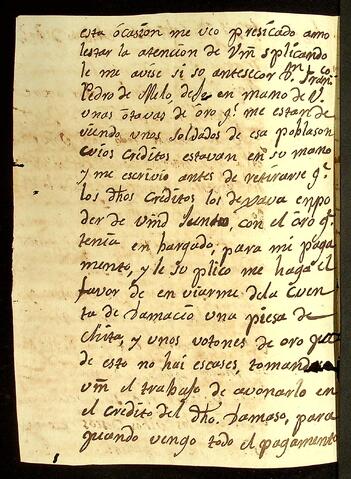 esta ôcasion me veo presicado amo
lestar la atencion de Vm suplicando
le me avise si so antescor Dn. Franco.
Pedro de Melo dejo en mano de V.
unas ôtavas de oro q̃ me estan de
viendo unos soldados de esa poblason
cuios creditos estavan en su mano
y me escrivio antes de retirarse q̃
los dhos creditos los dexava enpo
der de vmd Junto, con el oro q̃
tenia en bargado, para mi paga
mento, y le suplico me haga el
favor de en viarme dela Cuen
ta de Damacio una piesa de
Chita, y unos votones de oro que
de esto no hai escases, tomando
vm el trabajo de avonarlo en
el credito del dho. Damaso, para
quando vengo todo el pagamento